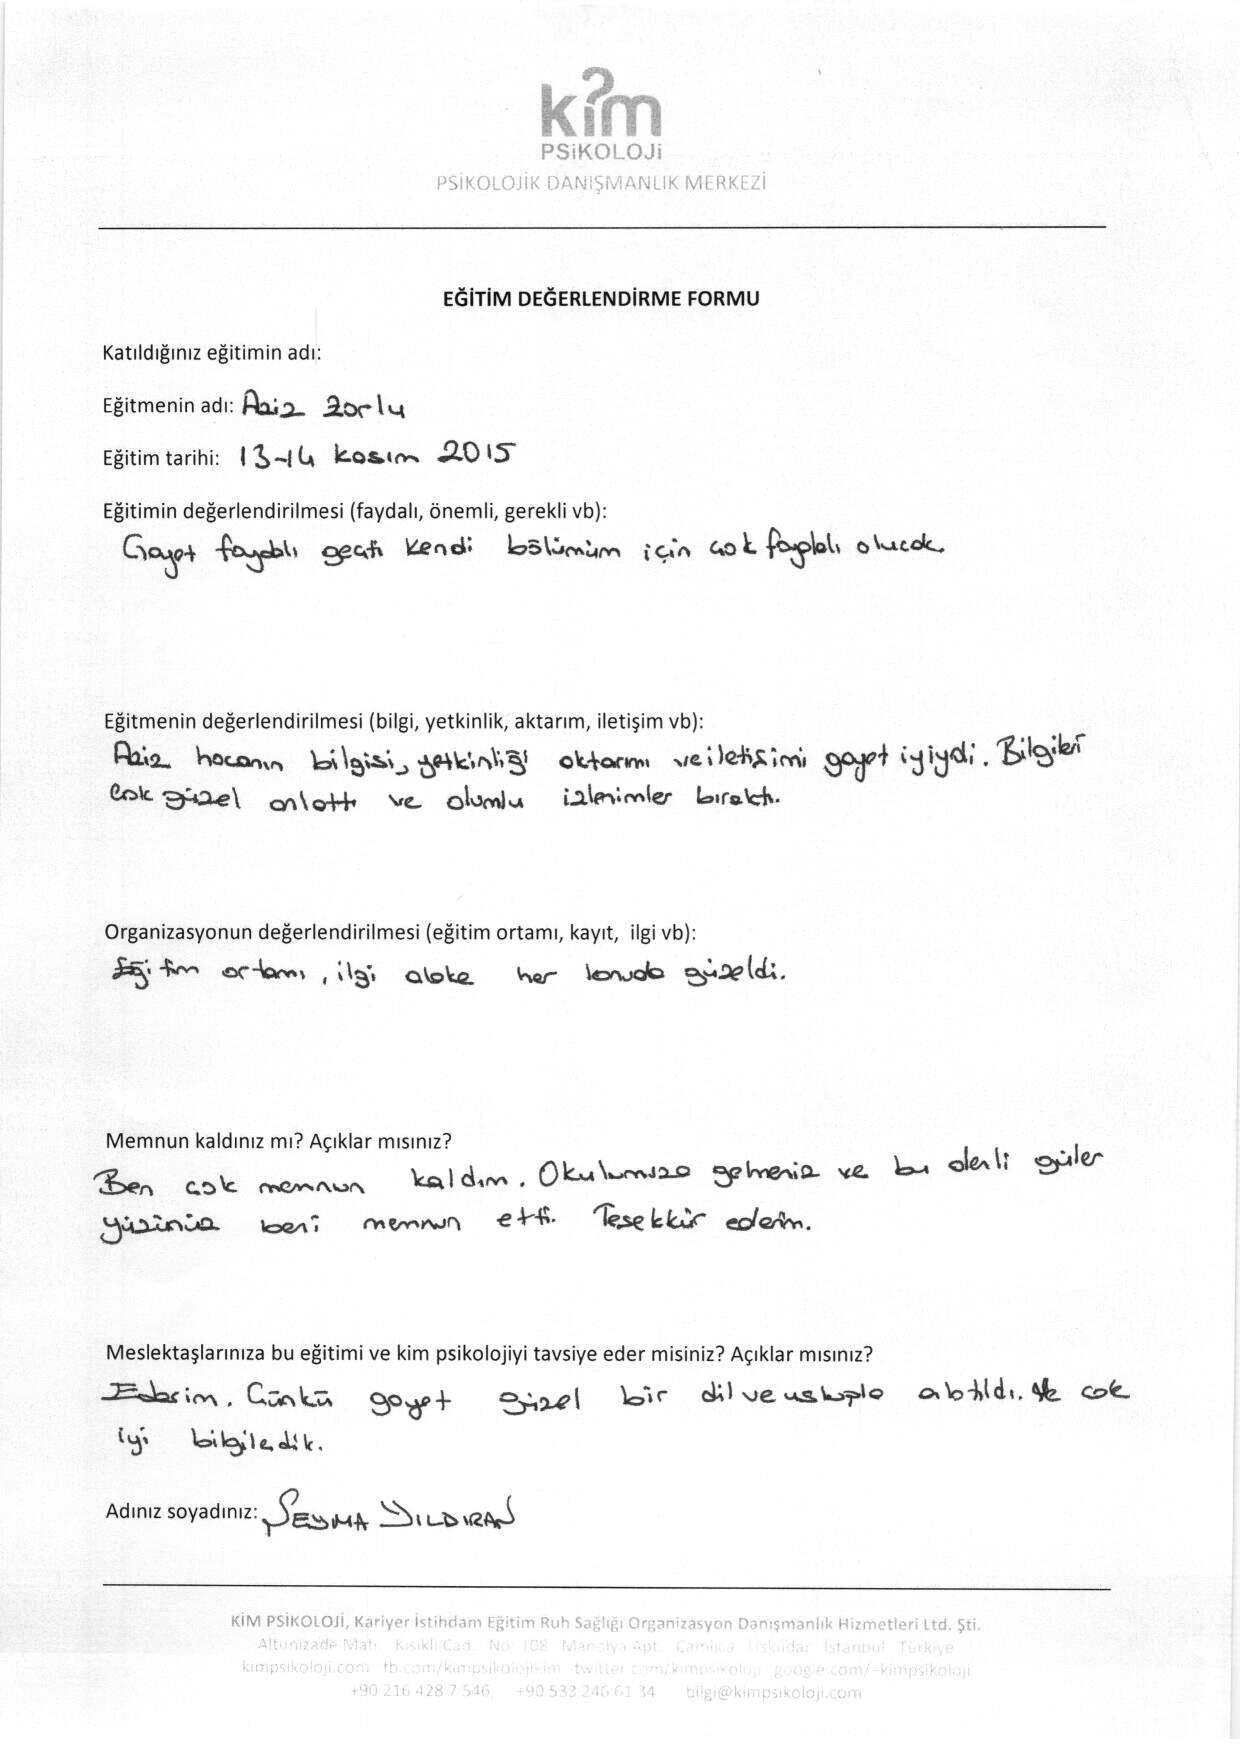 kim
PSiKOLOJi
PSİKOLOJİK DANIŞMANLIK MERKEZİ
EĞİTİM DEĞERLENDİRME FORMU
Katıldığınız eğitimin adı:
Eğitmenin adı: Aziz Zorlu
Eğitim tarihi: 13-14 kasım 2015
Eğitimin değerlendirilmesi (faydalı, önemli, gerekli vb):
Gayet faydalı geçti kendi bölümüm için çok faydalı olucak.
Eğitmenin değerlendirilmesi (bilgi, yetkinlik, aktarım, iletişim vb):
Aziz hocanın bilgisi, yetkinliği aktarımı ve iletişimi gayet iyiydi. Bilgileri
çok güzel anlattı ve olumlu izlenimler bıraktı.
Organizasyonun değerlendirilmesi (eğitim ortamı, kayıt, ilgi vb):
Eğitim ortamı, ilgi alaka her konuda güzeldi.
Memnun kaldınız mı? Açıklar mısınız?
Ben çok memnun kaldım. Okulumuza gelmeniz ve bu denli güler
yüzünüz beni memnun etti. Teşekkür ederim.
Meslektaşlarınıza bu eğitimi ve kim psikolojiyi tavsiye eder misiniz? Açıklar mısınız?
Ederim. Çünkü gayet güzel bir dil ve uslupla aktıldı. Ve çok
iyi bilgilendik.
Adınız soyadınız: ŞEYMA YILDIRAN
KİM PSİKOLOJİ, Kariyer İstihdam Eğitim Ruh Sağlığı Organizasyon Danışmanlık Hizmetleri Ltd. Şti.
Altunizade Mah. Kısıklı Cad. No: 108 Manolya Apt. Çamlıca Üsküdar İstanbul Türkiye
kimpsikoloji.com fb.com/kimpsikolojikim twitter.com/kimpsikoloji google.com/+kimpsikoloji
+90 216 428 7 546, +90 533 246 61 34 bilgi@kimpsikoloji.com